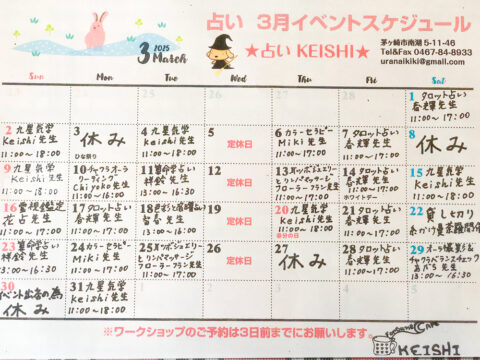 占い 3月イベントスケジュール
3 2025 March
★占い KEISHI★
茅ヶ崎市南湖 5-11-46
Tel&Fax 0467-84-8933
uranaikiki@gmail.com
Sun Mon Tue Wed Thu Fri Sat
1 タロット占い
先生
11:00〜17:00
2 九星気学
Keishi先生
11:00〜18:00
3 休み
ひな祭り
4 九星気学
Keishi先生
11:00〜18:00
5 定休日
6 カラーセラピー
Miki先生
11:00〜17:00
7 タロット占い
先生
11:00〜17:00
8 休み
9 九星気学
Keishi先生
11:00〜18:00
10 チャクラオーラ
リーディング
Chiyoko先生
11:00〜16:00
11 算命学占い
祥鈴先生
13:00〜16:30
12 定休日
13 耳ツボジュエリー
とリンパマッサージ
フローラーフラン先生
11:00〜17:00
14 タロット占い
先生
11:00〜17:00
ホワイトデー
15 九星気学
Keishi先生
11:00〜18:00
16 霊視鑑定
先生
11:00〜17:00
17 タロット占い
先生
11:00〜17:00
18
先生
11:00〜17:00
19 定休日
20 九星気学
Keishi先生
11:00〜18:00
春分の日
21 タロット占い
先生
11:00〜17:00
22 貸し切り
糸かけ曼荼羅
23 算命学占い
祥鈴先生
13:00〜16:30
24 カラーセラピー
Miki先生
11:00〜17:00
25 耳ツボジュエリー
とリンパマッサージ
フローラーフラン先生
11:00〜17:00
26 定休日
27 休み
28 タロット占い
先生
11:00〜17:00
29 オーラ撮影&
チャクラバランスチェック
先生
30 イベント出店の為
休み
31 九星気学
Keishi先生
11:00〜18:00
※ワークショップのご予約は3日前までにお願いします。
KEISHI